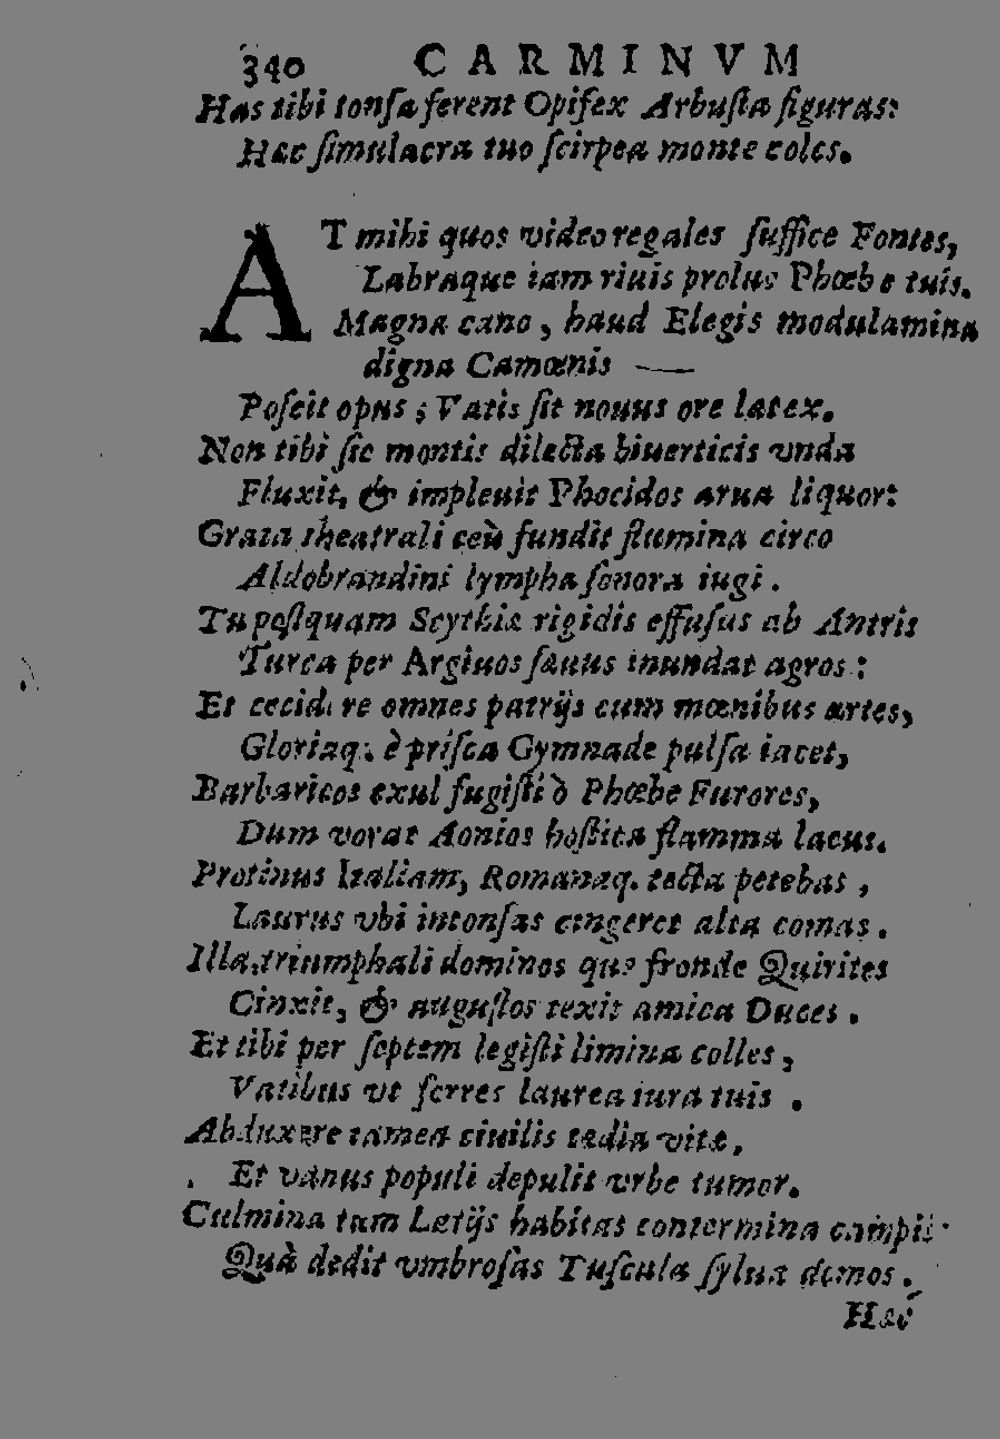 340 CARMINVM
Has tibi tonſa ferent Opifex Arbuſta figuras:
Hæc ſimulacra tuo ſcirpea monte coles.
AT mihi quos video regales ſuffice Fontes,
Labraque iam riuis prolue Phœbe tuis.
Magna cano, haud Elegis modulamina
digna Camœnis —
Poſcit opus; Vatis ſit nouus ore latex.
Non tibi ſic montis dilecta biuerticis vnda
Fluxit, & impleuit Phocidos arua liquor:
Grata theatrali ceù fundit flumina circo
Aldobrandini lympha ſonora iugi.
Tu poſtquam Scythiæ rigidis effuſus ab Antris
Turca per Argiuos ſæuus inundat agros:
Et cecidere omnes patrijs cum mœnibus artes,
Gloriaq. è priſca Gymnade pulſa iacet,
Barbaricos exul fugiſti ò Phœbe Furores,
Dum vorat Aonios hoſtica flamma lacus.
Protinus Italiam, Romanaq. tecta petebas,
Laurus vbi intonſas cingeret alta comas.
Illa, triumphali dominos quæ fronde Quirites
Cinxit, & auguſtos texit amica Duces.
Et tibi per ſeptem legiſti limina colles,
Vatibus vt ferres laurea iura tuis.
Abduxere tamen ciuilis tædia vitæ,
Et vanus populi depulit vrbe tumor.
Culmina tum Latijs habitas contermina campis
Quà dedit vmbroſas Tuſcula ſylua domos.
Hæc